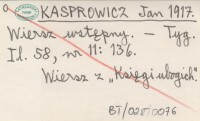 KASPROWICZ Jan 1917.
Wiersz wstępny. – Tyg.
Il. 58, nr 11: 136.
Wiersz z „Księgi ubogich".
BT/028/0076